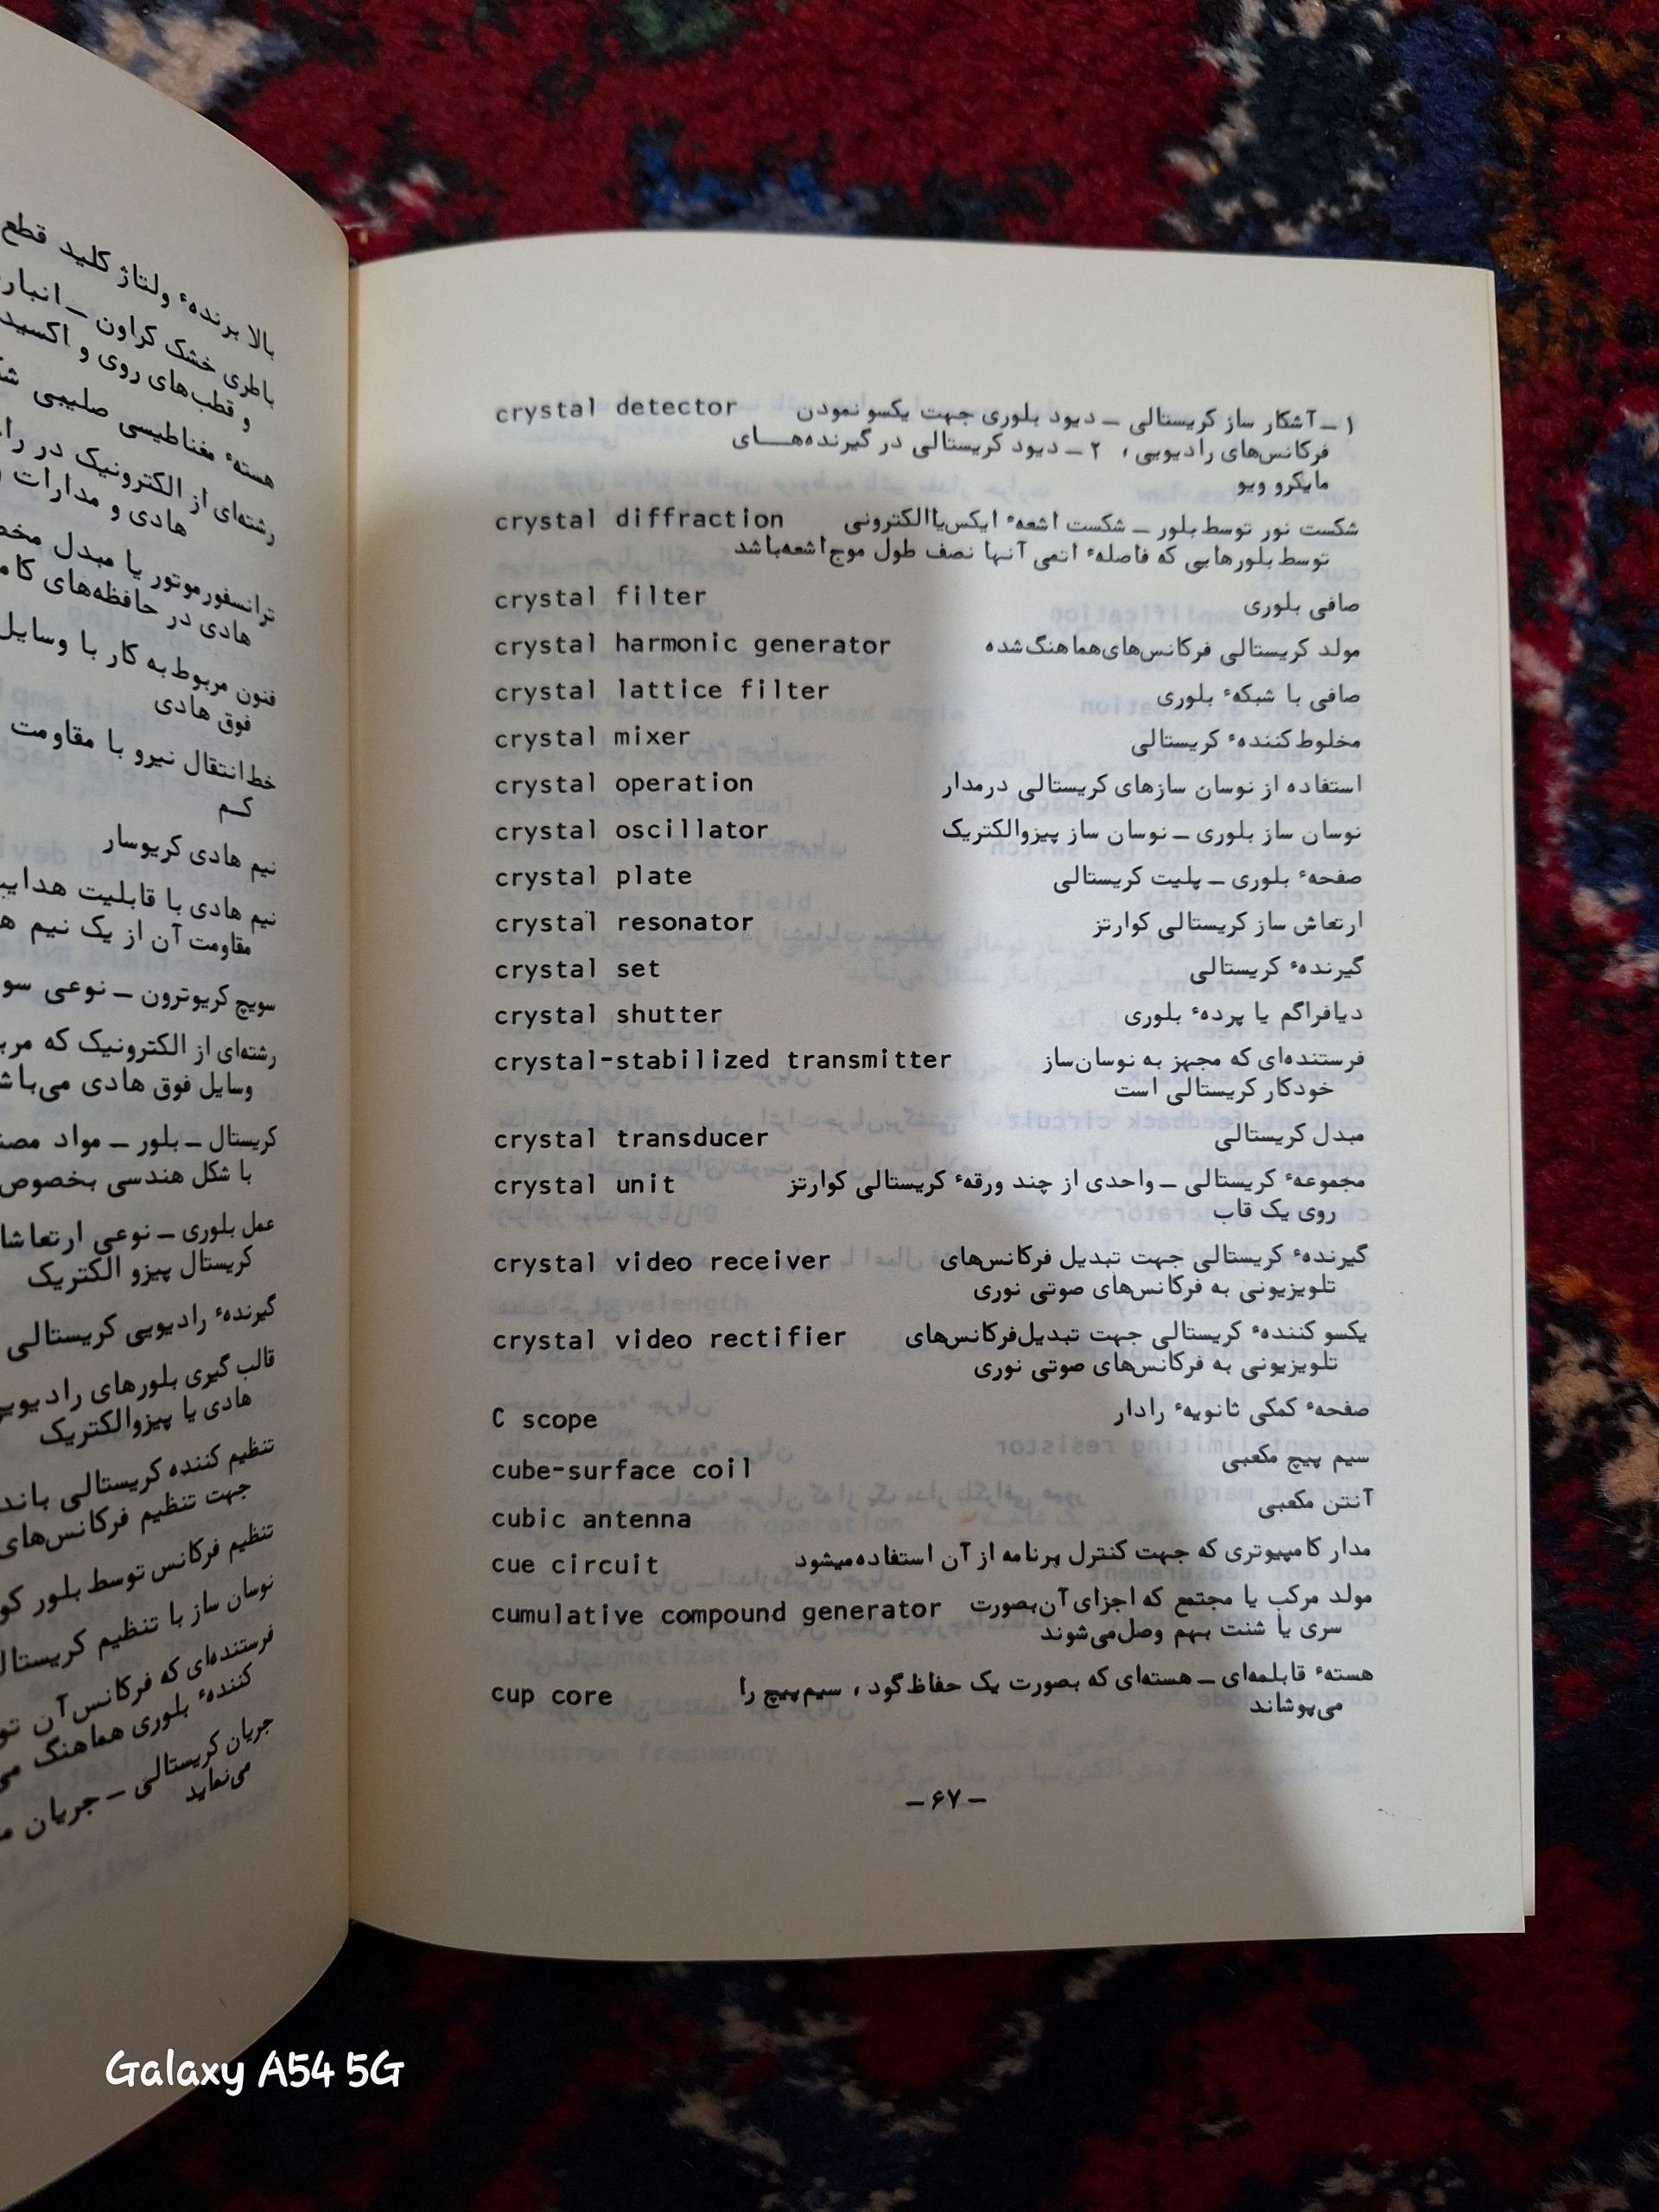 بالا برنده‌ٔ ولتاژ کلید قطع
باطری خشک کراون ــ انبار
و قطب‌های روی و اکسید
هسته‌ٔ مغناطیسی صلیبی
رشته‌ای از الکترونیک در
هادی و مدارات
ترانسفورموتور یا مبدل
هادی در حافظه‌های
فنون مربوط به کار با وسایل
فوق هادی
خط انتقال نیرو با مقاومت
کــم
نیم هادی کریوسار
نیم هادی با قابلیت
مقاومت آن از یک نیم
سویچ کریوترون ــ نوعی
رشته‌ای از الکترونیک که
وسایل فوق هادی
کریستال ــ بلور ــ مواد
با شکل هندسی بخصوص
عمل بلوری ــ نوعی
کریستال پیزو الکتریک
گیرنده‌ٔ رادیویی کریستالی
قالب گیری بلورهای
هادی یا پیزوالکتریک
تنظیم کننده کریستالی باند
جهت تنظیم فرکانس‌های
تنظیم فرکانس توسط بلور
نوسان ساز با تنظیم
فرستنده‌ای که فرکانس آن
کننده‌ٔ بلوری هماهنگ
جریان کریستالی ــ جریان
می‌نماید
crystal detector ۱ــ آشکار ساز کریستالی ــ دیود بلوری جهت یکسو نمودن
فرکانس‌های رادیویی، ۲ــ دیود کریستالی در گیرنده‌هــــای
مایکرو ویو
crystal diffraction شکست نور توسط بلور ــ شکست اشعه‌ٔ ایکس‌یاالکترونی
توسط بلورهایی که فاصله‌ٔ اتمی آنها نصف طول موج اشعه‌باشد
crystal filter صافی بلوری
crystal harmonic generator مولد کریستالی فرکانس‌های‌هماهنگ‌شده
crystal lattice filter صافی با شبکه‌ٔ بلوری
crystal mixer مخلوط کننده‌ٔ کریستالی
crystal operation استفاده از نوسان سازهای کریستالی درمدار
crystal oscillator نوسان ساز بلوری ــ نوسان ساز پیزوالکتریک
crystal plate صفحه‌ٔ بلوری ــ پلیت کریستالی
crystal resonator ارتعاش ساز کریستالی کوارتز
crystal set گیرنده‌ٔ کریستالی
crystal shutter دیافراگم یا پرده‌ٔ بلوری
crystal-stabilized transmitter فرستنده‌ای که مجهز به نوسان‌ساز
خودکار کریستالی است
crystal transducer مبدل کریستالی
crystal unit مجموعه‌ٔ کریستالی ــ واحدی از چند ورقه‌ٔ کریستالی کوارتز
روی یک قاب
crystal video receiver گیرنده‌ٔ کریستالی جهت تبدیل فرکانس‌های
تلویزیونی به فرکانس‌های صوتی نوری
crystal video rectifier یکسو کننده‌ٔ کریستالی جهت تبدیل‌فرکانس‌های
تلویزیونی به فرکانس‌های صوتی نوری
C scope صفحه‌ٔ کمکی ثانویه‌ٔ رادار
cube-surface coil سیم پیچ مکعبی
cubic antenna آنتن مکعبی
cue circuit مدار کامپیوتری که جهت کنترل برنامه از آن استفاده‌میشود
cumulative compound generator مولد مرکب یا مجتمع که اجزای آن‌بصورت
سری یا شنت بهم وصل‌می‌شوند
cup core هسته‌ٔ قابلمه‌ای ــ هسته‌ای که بصورت یک حفاظ گود، سیم‌پیچ را
می‌پوشاند
ــ ۶۷ ــ
Galaxy A54 5G